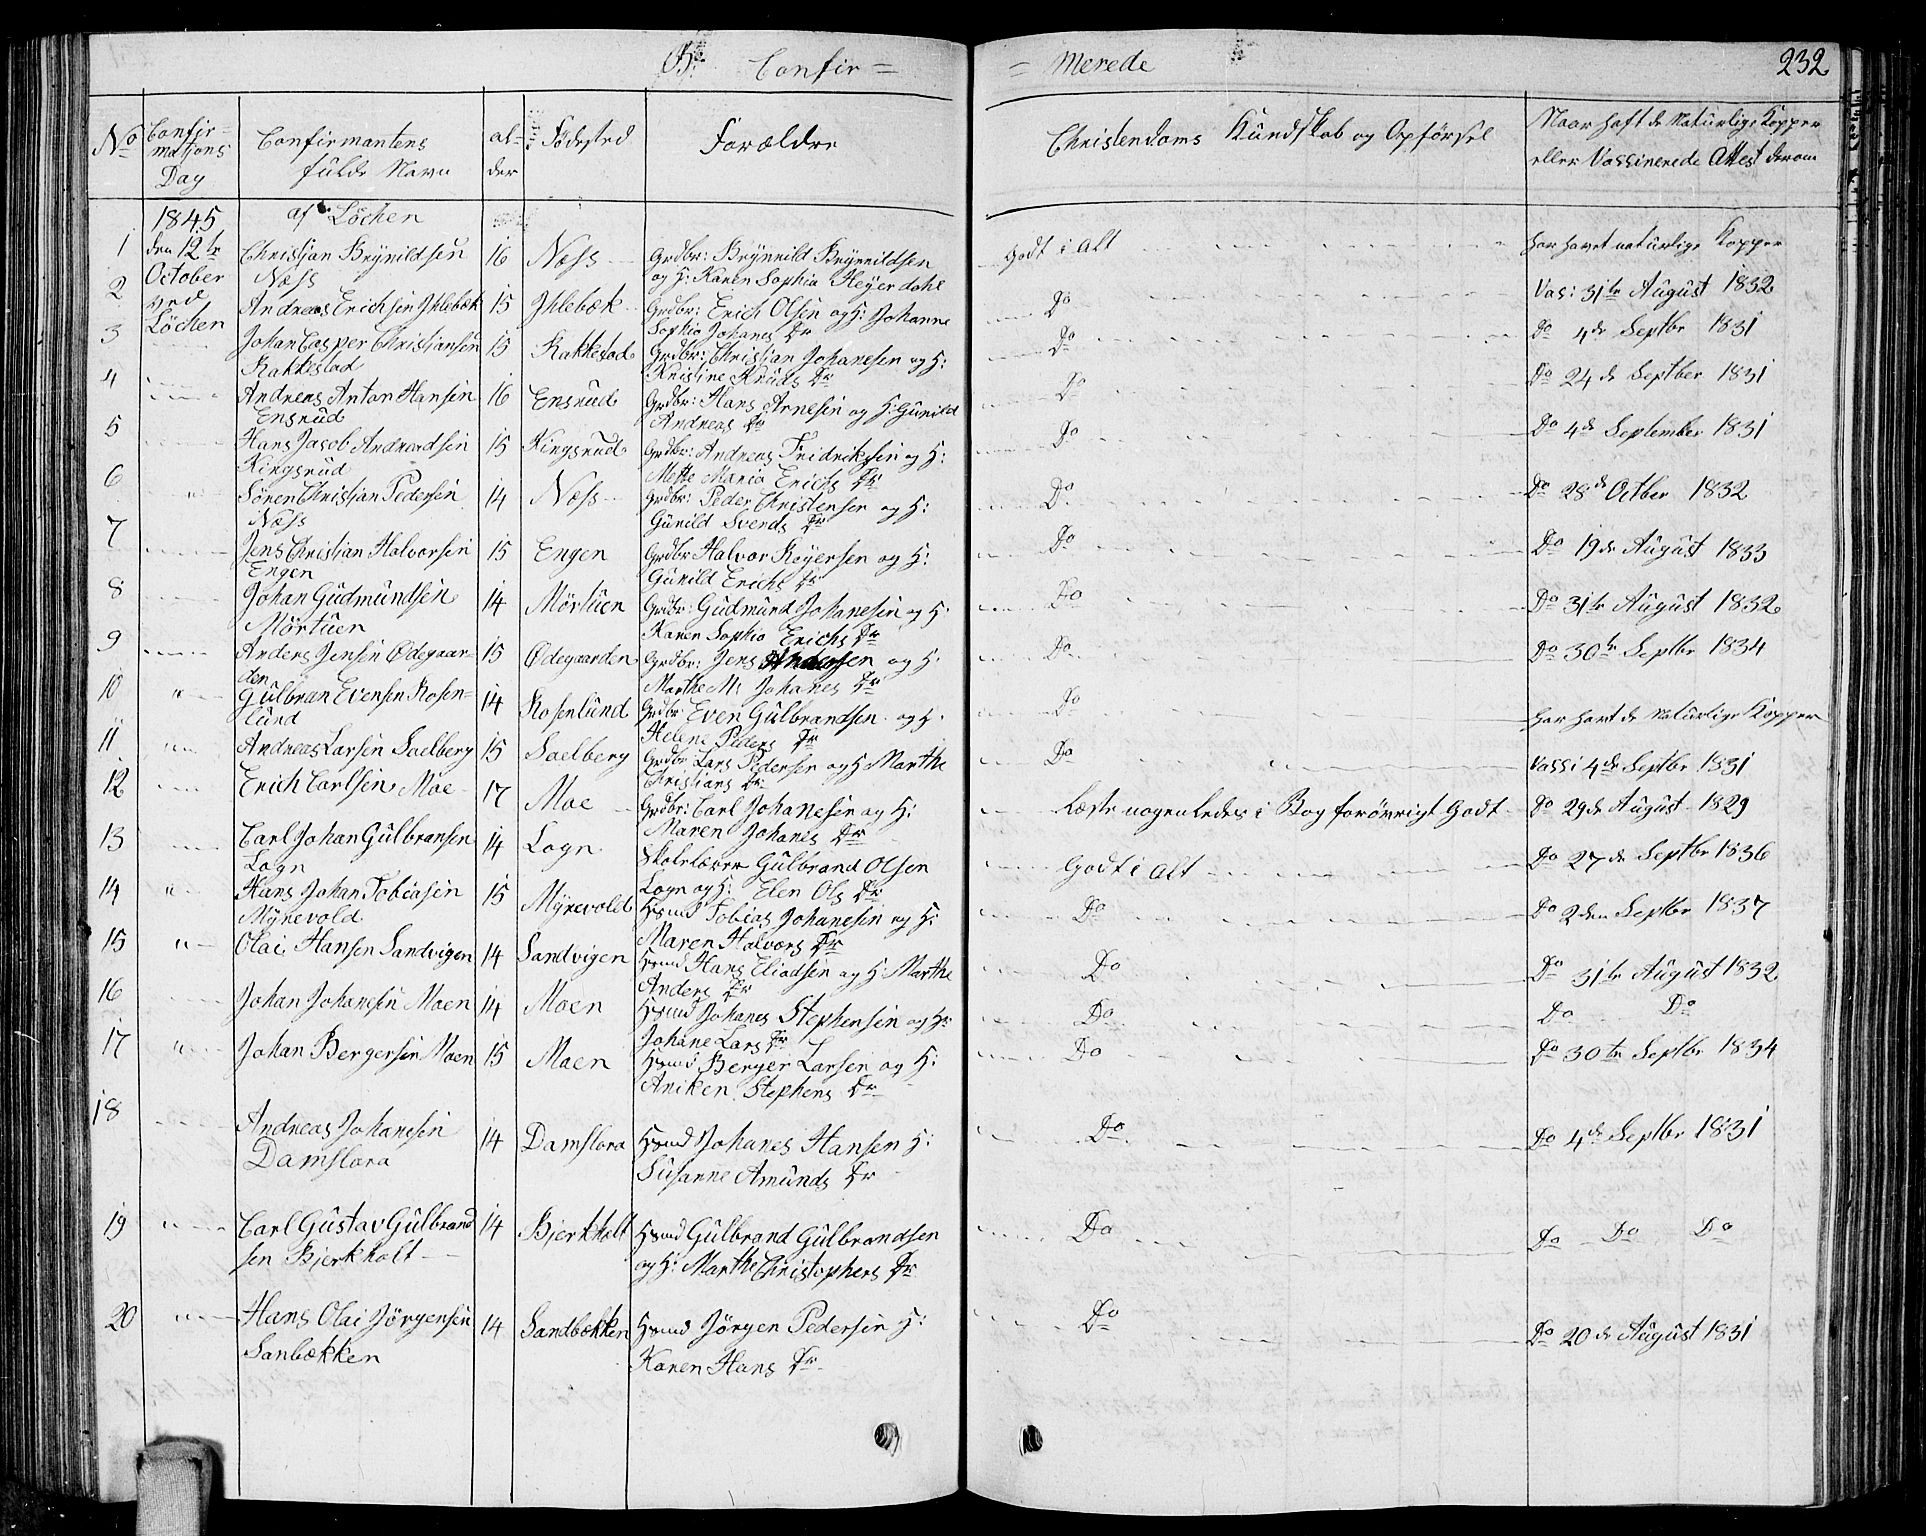 Confir = = Merede 232
No Confir=mations Day Confirmantens fulde Navn al-der Födested Forældre Christendoms Kundskab og Opförsel Naar haft de Naturlige Kopper eller Vassinerede Attest derom
1845 af Löchen
1 den 12te Christjan Brynildsen 16 Næss Grdbr: Brynnild Brynnildsen Godt i Alt har havet naturlige Kopper
October Næss og H: Karen Sophia Heyerdahl
2 ved Andreas Erichsen Ihlebæk 15 Ihlebæk Grdbr: Erich Olsen og H: Johanne Do Vas: 31te August 1832
Löchen Sophia Johanes Dr
3 Johan Casper Christjansen 15 Rakkestad Grdbr: Christjan Johanesen og H: Do Do 4de Septbr 1831
Rakkestad Kristine Knuds Dr
4 Andreas Anton Hansen 16 Ensrud Grdbr: Hans Arnesen og H: Gunild Do Do 24de Septber 1831
Ensrud Andreas Dr
5 Hans Jacob Andreasen 15 Kingsrud Grdbr: Andreas Fridriksen og H: Do Do 4de September 1831
Kingsrud Mette Maria Erichs Dr
6 Sören Christjan Pedersen 14 Næss Grdbr: Peder Christensen og H: Do Do 28de Octber 1832
Næss Gunild Svends Dr
7 Jens Christian Halvorsen 15 Engen Grdbr Halvor Reyersen og H: Do Do 19de August 1833
Engen Gunild Erichs Dr
8 Johan Gudmundsen 14 Mörtuen Grdbr: Gudmund Johanesen og H: Do Do 31te August 1832
Mörtuen Karen Sophia Erichs Dr
9 Anders Jensen Ødegaar= 15 Ødegaarden Grdbr: Jens Andersen og H: Do Do 30te Septbr 1834
den Marthe M: Johanes Dr
10 Gulbran Evensen Rosen= 14 Rosenlund Grdbr Even Gulbrandsen og H: Do har havt de Naturlige Kopper
lund Helene Peders Dr
11 Andreas Larsen Saelberg 15 Saelberg Grdbr Lars Pedersen og H Marthe Do Vass: 4de Septbr 1831
Christians Dr
12 Erich Carlsen Moe 17 Moe Grdbr: Carl Johanesen og H: Læste nogenledes i Bog forövrigt Godt Do 29de August 1829
Maren Johanes Dr
13 Carl Johan Gulbransen 14 Logn Skolelærer Gulbrand Olsen Godt i Alt Do 27de Septbr 1836
Logn Logn og H: Elen Ols Dr
14 Hans Johan Tobiasen 15 Myrevold Hsmd Tobias Johanesen og H: Do Do 2den Septbr 1837
Myrevold Maren Halvors Dr
15 Olai Hansen Sandvigen 14 Sandvigen Hsmd Hans Eliadsen og H: Marthe Do Do 31te August 1832
Anders Dr
16 Johan Johanesen Moen 14 Moen Hsmd Johanes Stephensen og H: Do Do Do
Johane Lars Dr
17 Johan Bergersen Moen 15 Moen Hsmd Berger Larsen og H: Do Do 30te Septbr 1834
Aniken Stephens Dr
18 Andreas Johanesen 14 Damflora Hsmd Johanes Hansen H: Do Do 4de Septbr 1831
Damflora Susanne Amunds Dr
19 Carl Gustav Gulbrand 14 Bjerkholt Hsmd Gulbrand Gulbrandsen Do Do Do Do
sen Bjerkholt og H: Marthe Christophers Dr
20 Hans Olai Jörgensen 14 Sandbækken Hsmd Jörgen Pedersen H: Do Do 20de August 1831
Sanbækken Karen Hans Dr